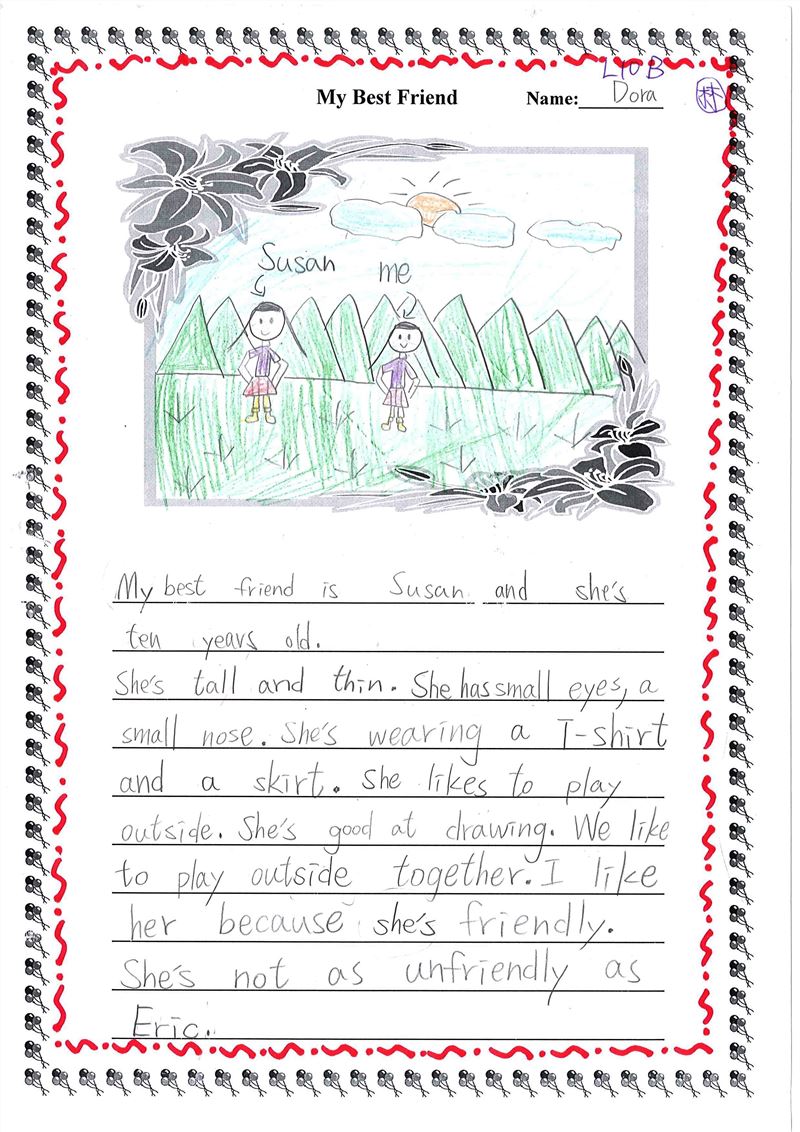 L10B
My Best Friend Name: Dora
林
Susan me
My best friend is Susan and she's
ten years old.
She's tall and thin. She has small eyes, a
small nose. She's wearing a T-shirt
and a skirt. She likes to play
outside. She's good at drawing. We like
to play outside together. I like
her because she's friendly.
She's not as unfriendly as
Eric.